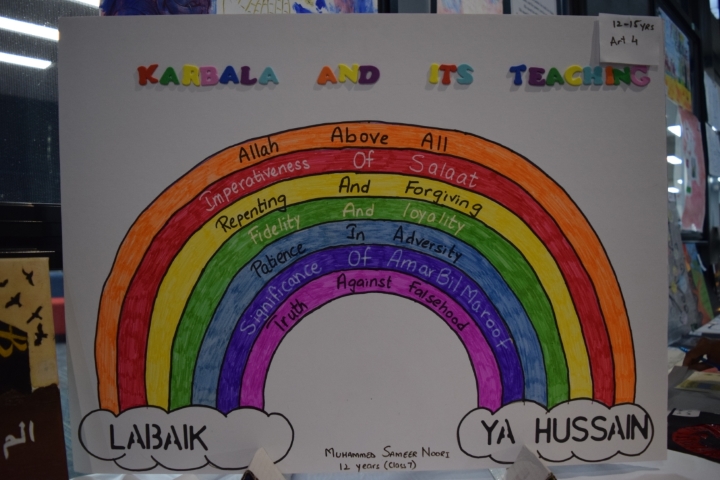 12-15yrs
Art 4
KARBALA AND ITS TEACHING
Allah Above All
Imperativeness Of Salaat
Repenting And Forgiving
Fidelity And loyality
Patience In Adversity
Significance Of Amar Bil Maroof
Truth Against Falsehood
LABAIK
YA HUSSAIN
MUHAMMED SAMEER NOORI
12 years (Class 7)
الم